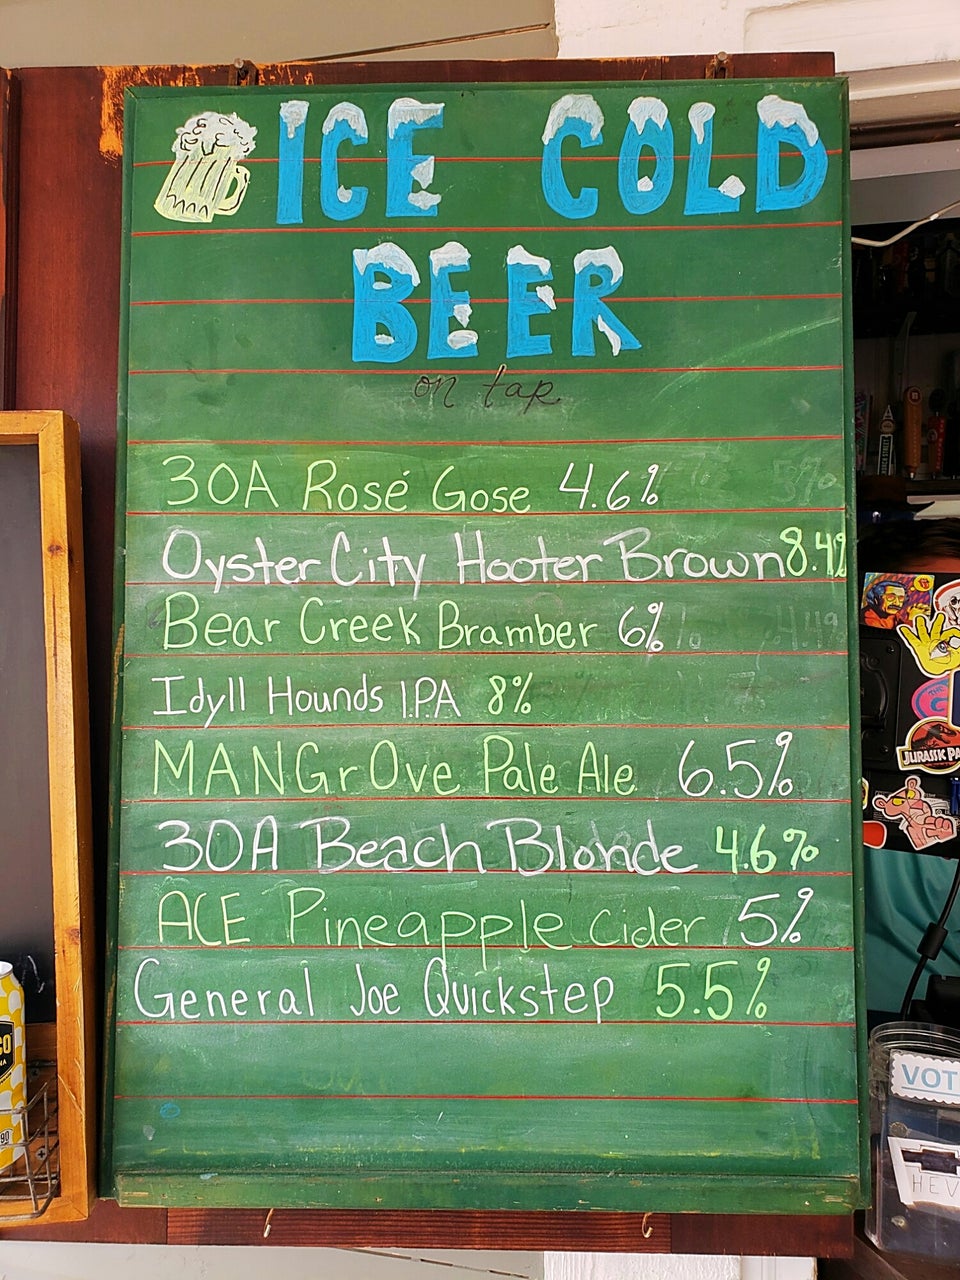 ICE COLD
BEER
on tap
30A Rosé Gose 4.6%
Oyster City Hooter Brown 8.4%
Bear Creek Bramber 6%
Idyll Hounds I.P.A 8%
MANGrOve Pale Ale 6.5%
30A Beach Blonde 4.6%
ACE Pineapple Cider 5%
General Joe Quickstep 5.5%
JURASSIC PA
VOT
HEV